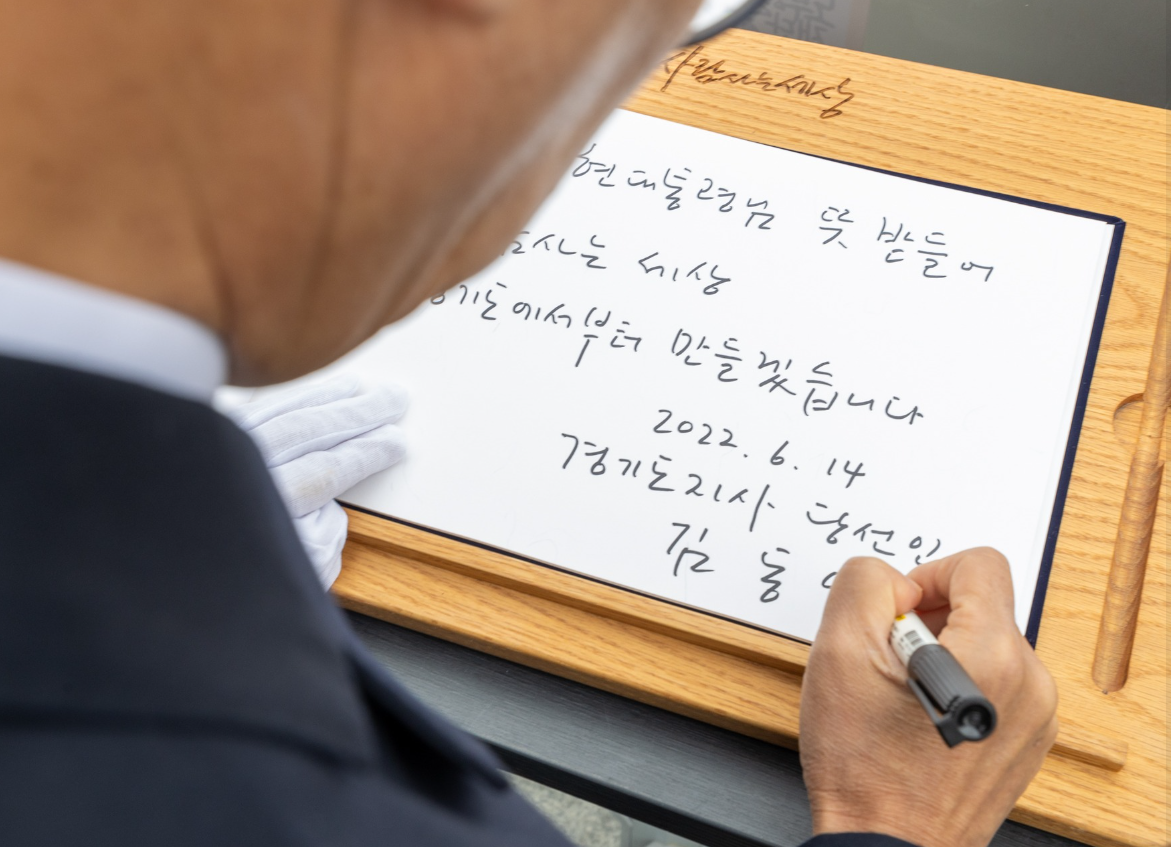 사람사는세상
현대통령님 뜻 받들어
사는 세상
경기도에서부터 만들겠습니다
2022. 6. 14
경기도지사 당선인
김 동